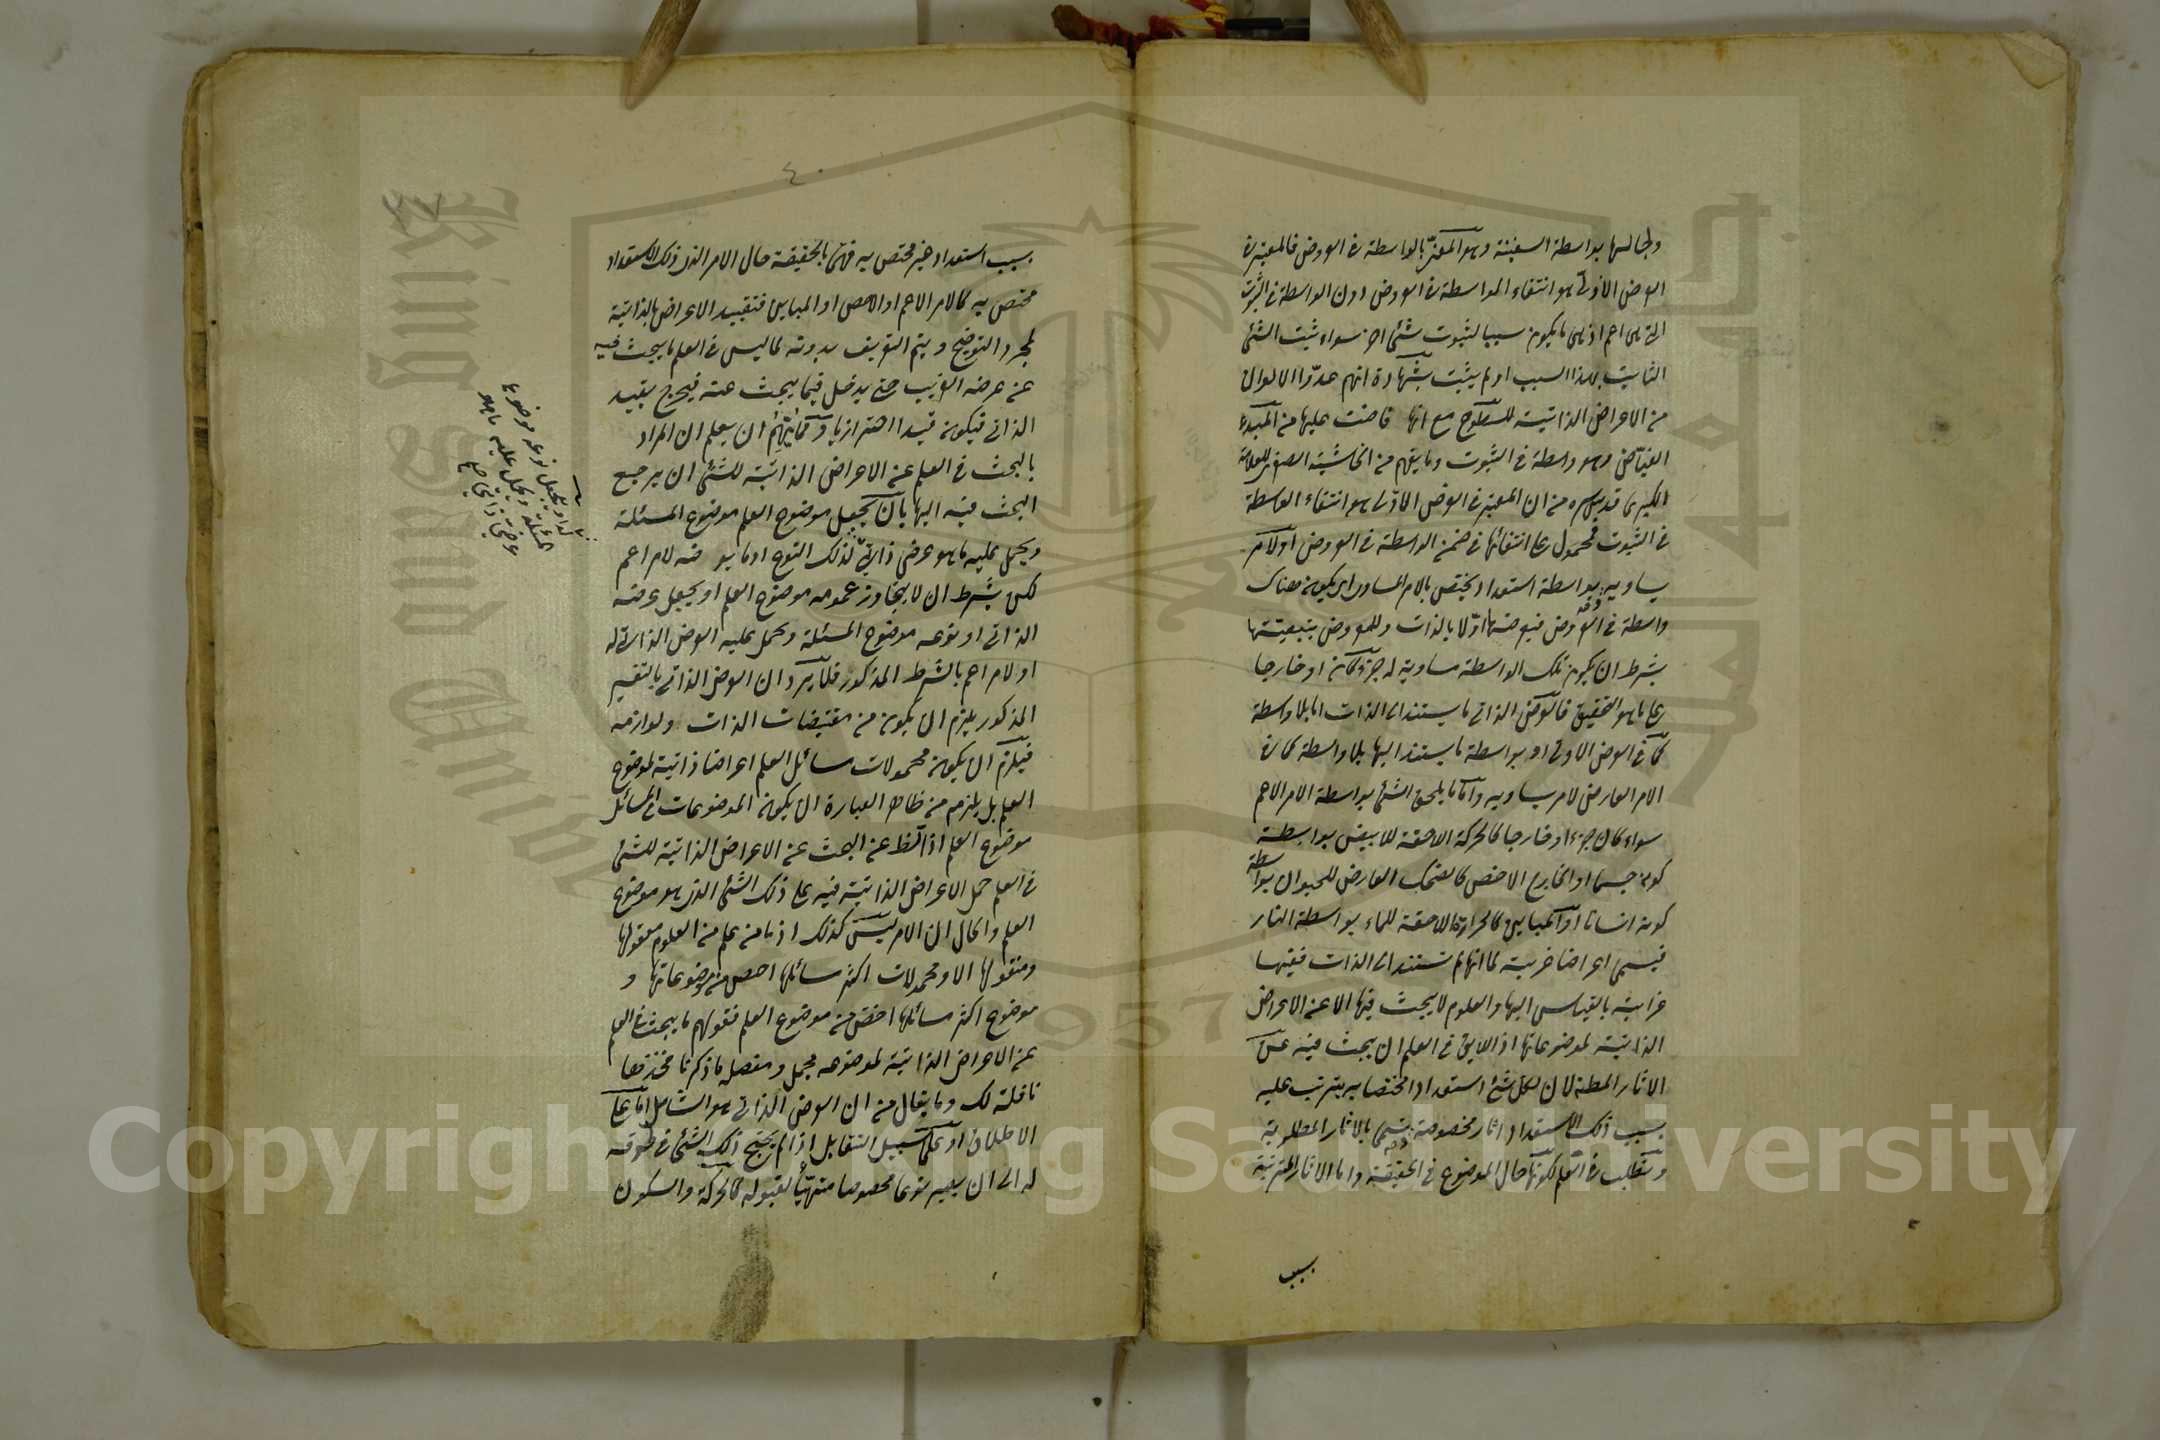 ولجالسها بواسطة السفينة وهو المعبّر بالواسطة في العروض فالمعتبر في
العرض الاوّلي هو انتفاء الواسطة في العروض دون الواسطة في الثبوت
التي هي اعم اذ هي ما يكون سببا لثبوت شئ اخر سواء ثبت الشئ
الثابت بهذا السبب او لم يثبت بشهادة انهم عدّوا الالوان
من الاعراض الذاتية للسطوح مع انها فاضت عليها من المبدء
الفيّاض وهو واسطة في الثبوت وما يفهم من الحاشية الصغرى للعلامة
قدس سره من ان المعتبر في العرض الاوّلي هو انتفاء الواسطة
في الثبوت فمحمول على انتفائها في ضمن الواسطة في العروض او لامر
يساويه بواسطة استعداد يختص بالامر المساوى اى يكون هناك
واسطة في العروض فيعرضها اوّلا بالذات وللمعروض بتبعيتها
بشرط ان يكون تلك الواسطة مساوية له جزءً كان او خارجا
على ما هو التحقيق فالعرض الذاتي ما يستند الى الذات اما بلا واسطة
كما في العرض الاولي او بواسطة ما يستند اليها بلا واسطة كما في
الامر العارض لامر يساويه واما ما يلحق الشئ بواسطة الامر الاعم
سواء كان جزءا او خارجا كالحركة اللاحقة للابيض بواسطة
كونه جسما او الخارج الاخص كالضحك العارض للحيوان بواسطة
كونه انسانا او المباين كالحرارة اللاحقة للماء بواسطة النار
فيسمى اعراضا غريبة لما انها لم تستند الى الذات ففيها
غرابة بالقياس اليها والعلوم لا يبحث فيها الا عن الاعراض
الذاتية لموضوعاتها اذ اللايق في العلم ان يبحث فيه عن
الاثار المطلوبة لان لكل شئ استعدادا مختصا به يترتب عليه
بسبب ذلك الاستعداد اثار مخصوصة تسمى بالاثار المطلوبة
وتطلب في العلم لكونها حال الموضوع في الحقيقة واما الاثار المترتبة
بسبب
٤٠
بسبب استعداد غير مختص به فهى بالحقيقة حال الامر الذى ذلك الاستعداد
مختص به كالامر الاعم او الاخص او المباين فتقييد الاعراض بالذاتية
لمجرد التوضيح ويتم التعريف بدونه لما ليس في العلم ما يبحث فيه
عن عرضه الغريب حتى يدخل فيما يبحث عنه فيخرج بقيد
الذاتي فيكون قيدا احترازيا ومما يهمّ ان يعلم ان المراد
بالبحث في العلم عن الاعراض الذاتية للشئ ان يرجع
البحث فيه اليها بان يجعل موضوع العلم موضوع المسئلة
ويحمل عليه ما هو عرض ذاتيّ لذلك النوع او ما يعرضه لامر اعم
لكن بشرط ان لا يتجاوز عمومه موضوع العلم او يجعل عرضه
الذاتي او نوعه موضوع المسئلة ويحمل عليه العرض الذاتي له
او لامر اعم بالشرط المذكور فلا يرد ان العرض الذاتي بالتفسير
المذكور يلزم ان يكون من مقتضيات الذات ولوازمه
فيلزم ان يكون محمولات مسائل العلم اعراضا ذاتية لموضوع
العلم بل يلزم من ظاهر العبارة ان يكون الموضوعات في المسائل
موضوع العلم اذ الظ من البحث عن الاعراض الذاتية للشئ
في العلم حمل الاعراض الذاتية فيه على ذلك الشئ الذى هو موضوع
العلم والحال ان الامر ليس كذلك اذ ما من علم من العلوم معقولها
ومنقولها الا ومحمولات اكثر مسائلها اخص من موضوعاتها و
موضوع اكثر مسائلها اخص من موضوع العلم فقولهم ما يبحث في العلم
عن الاعراض الذاتية لموضوعه مجمل ومفصله ما ذكرنا فخذ فها
نافلة لك وما يقال من ان العرض الذاتي هو الشامل امّا على
الاطلاق او على سبيل التقابل اذا لم يحتج ذلك الشئ في لحوقه
له الى ان يصير نوعا مخصوصا متهيّأ لقبوله كالحركة والسكون
او يجعل نوعه موضوع
المسئلة ويحمل عليه ما هو
عرض ذاتي صح
Copyright © King Saud University
King Saud University
1957